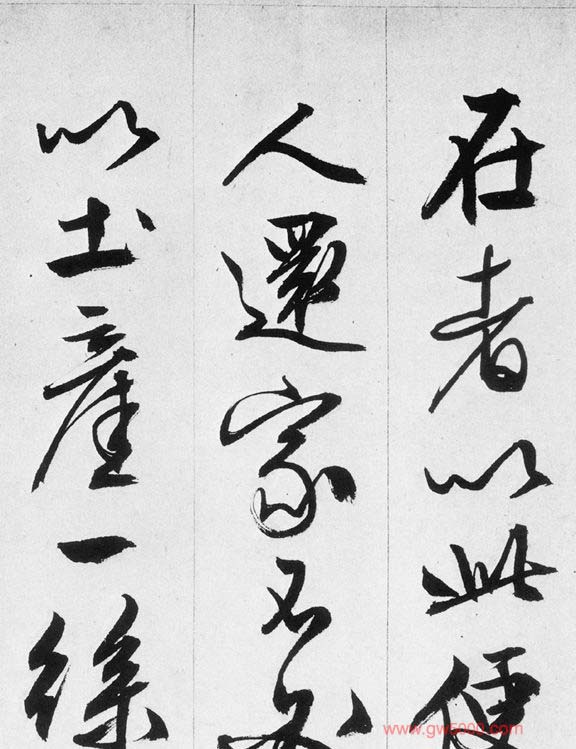 在者以此
人還家
以土產一
www.gw5000.com